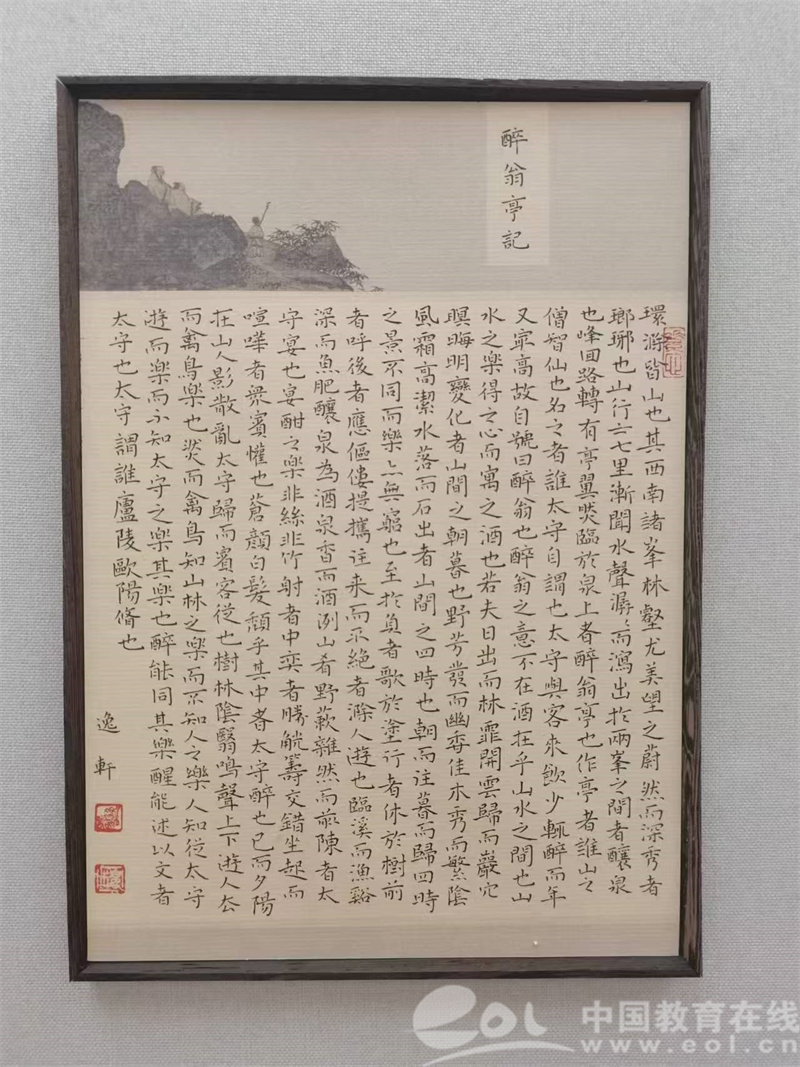 醉翁亭記
環滁皆山也其西南諸峯林壑尤美望之蔚然而深秀者
瑯琊也山行六七里漸聞水聲潺〻而瀉出於兩峯之間者釀泉
也峰回路轉有亭翼然臨於泉上者醉翁亭也作亭者誰山之
僧智仙也名之者誰太守自謂也太守與客來飲少輒醉而年
又㝡高故自號曰醉翁也醉翁之意不在酒在乎山水之間也山
水之樂得之心而寓之酒也若夫日出而林霏開雲歸而巖穴
暝晦明變化者山間之朝暮也野芳發而幽香佳木秀而繁陰
風霜高潔水落而石出者山間之四時也朝而往暮而歸四時
之景不同而樂亦無窮也至於負者歌於塗行者休於樹前
者呼後者應傴僂提攜往来而不絕者滁人遊也臨溪而漁谿
深而魚肥釀泉為酒泉香而酒洌山肴野蔌雜然而前陳者太
守宴也宴酣之樂非絲非竹射者中奕者勝觥籌交錯坐起而
喧嘩者衆賓懽也蒼顏白髮頹乎其中者太守醉也已而夕陽
在山人影散亂太守歸而賓客從也樹林陰翳鳴聲上下遊人去
而禽鳥樂也然而禽鳥知山林之樂而不知人之樂人知從太守
遊而樂而不知太守之樂其樂也醉能同其樂醒能述以文者
太守也太守謂誰廬陵歐陽脩也
逸軒
eol 中国教育在线
www.eol.cn